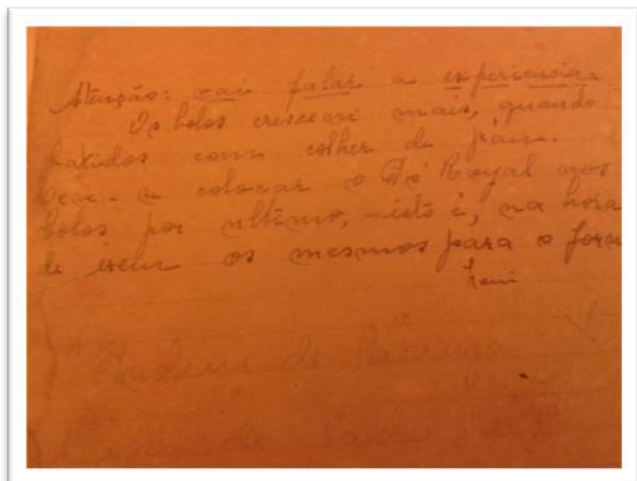 Atenção: vai falar a experiencia.
Os bolos crescem mais, quando
batidos com colher de páu.
Deve-se colocar o Pó Royal nos
bolos por ultimo, isto é, na hora
de irem os mesmos para o forno
Pudim de laranja